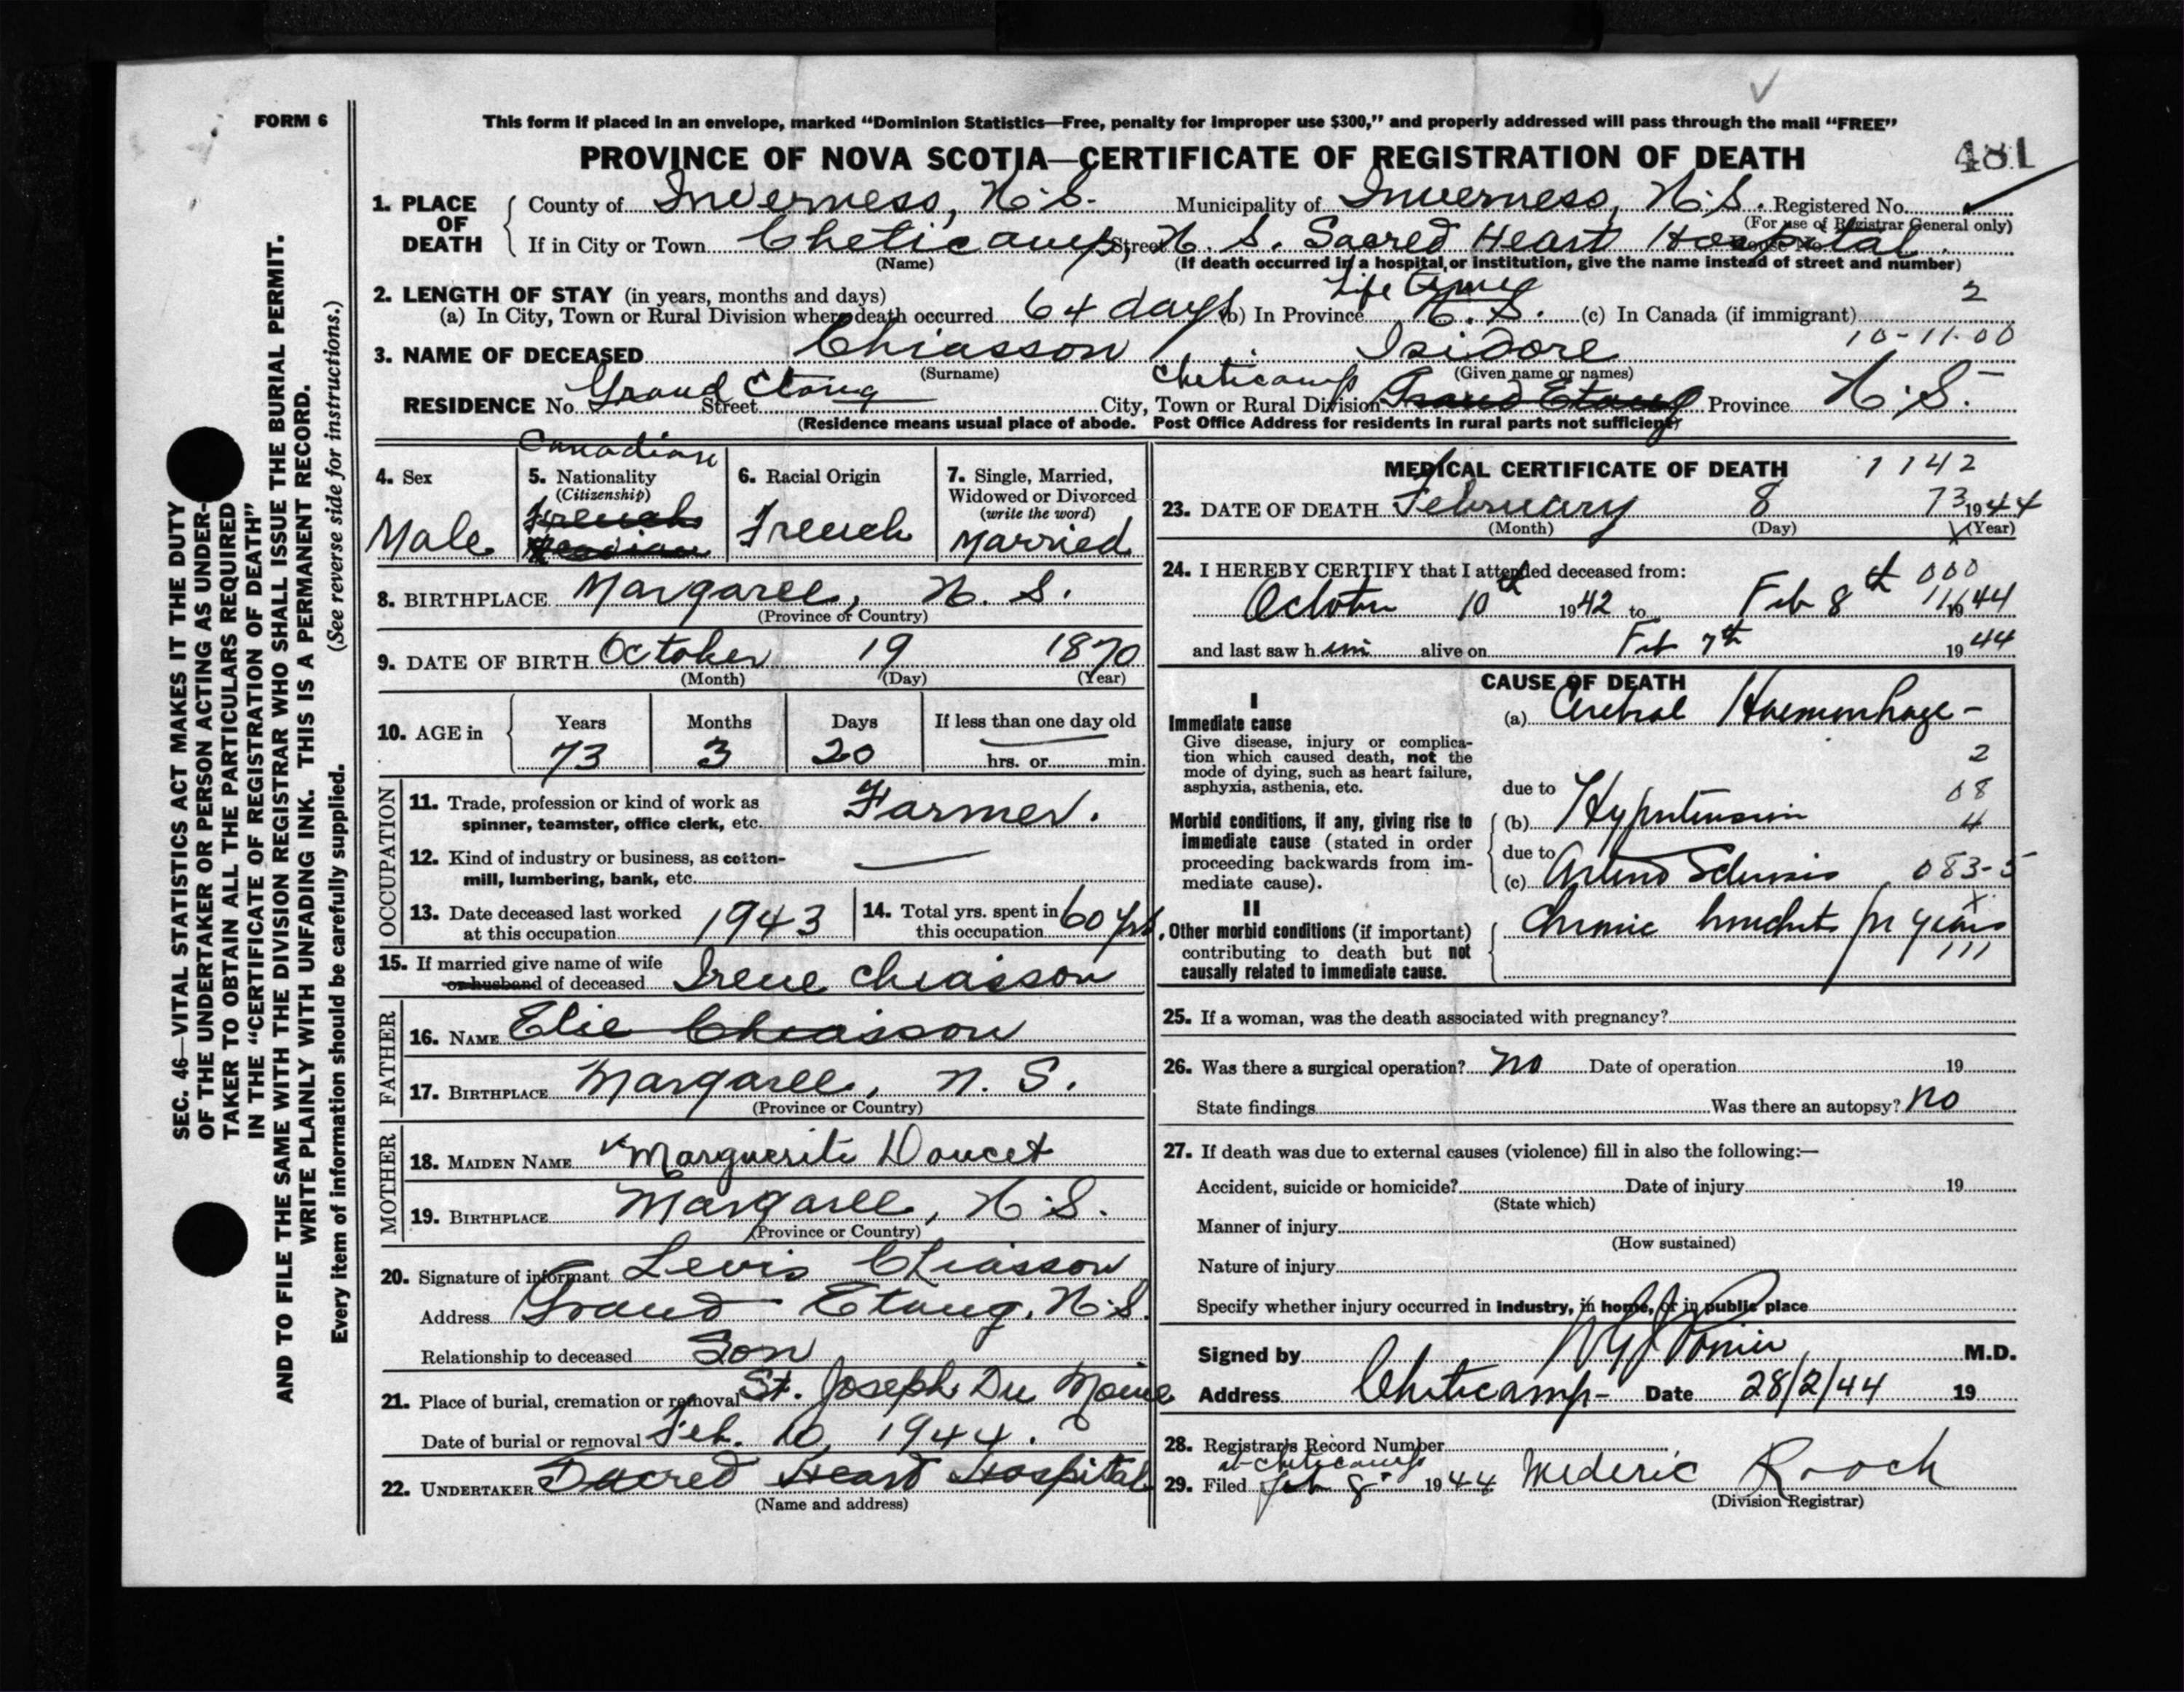 FORM 6
This form if placed in an envelope, marked "Dominion Statistics—Free, penalty for improper use $300," and properly addressed will pass through the mail "FREE"
PROVINCE OF NOVA SCOTIA—CERTIFICATE OF REGISTRATION OF DEATH
481
1. PLACE OF DEATH
County of Inverness, N.S. Municipality of Inverness, N.S. Registered No.
(For use of Registrar General only)
If in City or Town Cheticamp, Street N. S. Sacred Heart Hospital.
(Name) (If death occurred in a hospital or institution, give the name instead of street and number)
2. LENGTH OF STAY (in years, months and days)
(a) In City, Town or Rural Division where death occurred 64 days (b) In Province Life time N.S. (c) In Canada (if immigrant) 2
10-11-00
3. NAME OF DECEASED Chiasson, Isidore
(Surname) (Given name or names)
RESIDENCE No. Grand Etang Street City, Town or Rural Division Cheticamp Grand Etang Province N.S.
(Residence means usual place of abode. Post Office Address for residents in rural parts not sufficient)
4. Sex
Male
5. Nationality
(Citizenship)
Canadian
French
6. Racial Origin
French
7. Single, Married, Widowed or Divorced
(write the word)
Married
8. BIRTHPLACE Margaree, N. S.
(Province or Country)
9. DATE OF BIRTH October 19 1870
(Month) (Day) (Year)
10. AGE in
Years Months Days If less than one day old
73 3 20 hrs. or min.
OCCUPATION
11. Trade, profession or kind of work as
spinner, teamster, office clerk, etc. Farmer.
12. Kind of industry or business, as cotton-
mill, lumbering, bank, etc. —
13. Date deceased last worked
at this occupation 1943
14. Total yrs. spent in
this occupation 60 yrs
15. If married give name of wife
or husband of deceased Irene Chiasson
FATHER
16. NAME Elie Chiasson
17. BIRTHPLACE Margaree, N. S.
(Province or Country)
MOTHER
18. MAIDEN NAME Marguerite Doucet
19. BIRTHPLACE Margaree, N.S.
(Province or Country)
20. Signature of informant Levis Chiasson
Address Grand Etang, N.S.
Relationship to deceased Son
21. Place of burial, cremation or removal St. Joseph Du Moine
Date of burial or removal Feb. 10, 1944.
22. UNDERTAKER Sacred Heart Hospital
(Name and address)
MEDICAL CERTIFICATE OF DEATH 1142
23. DATE OF DEATH February 8 73 1944
(Month) (Day) (Year)
24. I HEREBY CERTIFY that I attended deceased from: 000
October 10th 1942 to Feb 8th 1944
and last saw him alive on Feb 7th 1944
CAUSE OF DEATH
I
Immediate cause
Give disease, injury or complica-
tion which caused death, not the
mode of dying, such as heart failure,
asphyxia, asthenia, etc.
(a) Cerebral Haemorrhage -
2
due to 08
Morbid conditions, if any, giving rise to
immediate cause (stated in order
proceeding backwards from im-
mediate cause).
(b) Hypertension 4
due to
(c) Arterio Sclerosis 083-5
II
Other morbid conditions (if important)
contributing to death but not
causally related to immediate cause.
Chronic bronchitis for years
111
25. If a woman, was the death associated with pregnancy?
26. Was there a surgical operation? No Date of operation 19
State findings Was there an autopsy? No
27. If death was due to external causes (violence) fill in also the following:—
Accident, suicide or homicide? Date of injury 19
(State which)
Manner of injury
(How sustained)
Nature of injury
Specify whether injury occurred in industry, in home, or in public place
Signed by M.D.
Address Cheticamp- Date 28/2/44 19
28. Registrar's Record Number
at Cheticamp
29. Filed Feb 8th 1944 Mederic Roach
(Division Registrar)
SEC. 46—VITAL STATISTICS ACT MAKES IT THE DUTY
OF THE UNDERTAKER OR PERSON ACTING AS UNDER-
TAKER TO OBTAIN ALL THE PARTICULARS REQUIRED
IN THE "CERTIFICATE OF REGISTRATION OF DEATH"
AND TO FILE THE SAME WITH THE DIVISION REGISTRAR WHO SHALL ISSUE THE BURIAL PERMIT.
WRITE PLAINLY WITH UNFADING INK. THIS IS A PERMANENT RECORD.
Every item of information should be carefully supplied. (See reverse side for instructions.)